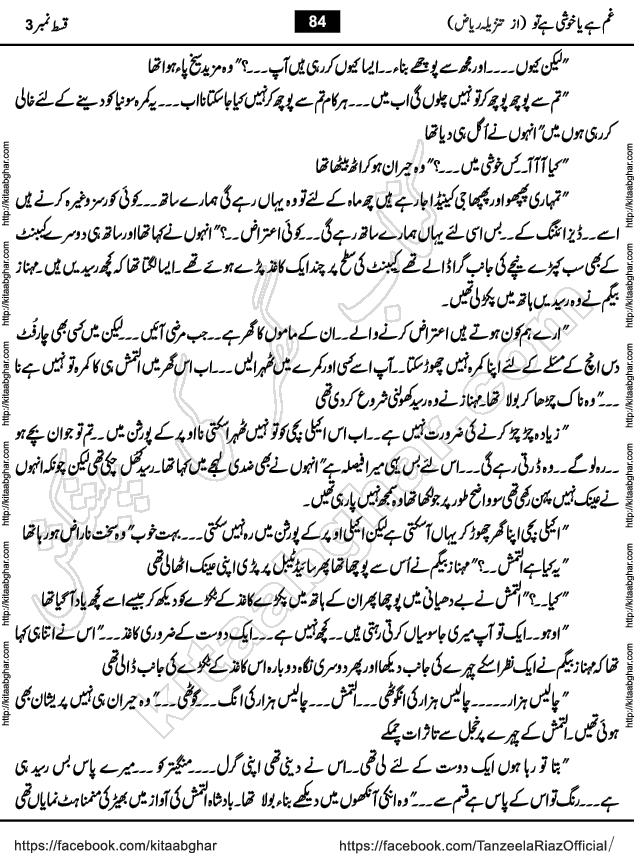 غم ہے یا خوشی ہے تو (از تنزیلہ ریاض) 84 قسط نمبر 3
"لیکن کیوں۔۔۔۔اور مجھ سے پوچھے بناء۔۔ایسا کیوں کر رہی ہیں آپ۔۔۔؟" وہ مزید سیخ پاء ہوا تھا
"تم سے پوچھ پوچھ کر تو نہیں چلوں گی اب میں۔۔۔ہر کام تم سے پوچھ کر نہیں کیا جا سکتا نا اب۔۔۔یہ کمرہ سونیا کو دینے کے لئے خالی
کر رہی ہوں میں" انہوں نے اُگل ہی دیا تھا
"کیا آآآ۔۔کس خوشی میں۔۔۔؟" وہ حیران ہو کر اٹھ بیٹھا تھا
"تمہاری پھپھو اور پھپھا جی کینیڈا جا رہے ہیں چھ ماہ کے لئے تو وہ یہاں رہے گی ہمارے ساتھ۔۔۔کوئی کورسز وغیرہ کرنے ہیں
اسے۔۔ڈیزائننگ کے۔۔بس اسی لئے یہاں ہمارے ساتھ رہے گی۔۔۔کوئی اعتراض۔۔؟" انہوں نے کہا تھا اور ساتھ ہی دوسرے کیبنٹ
کے بھی سب کپڑے نیچے کی جانب گرا ڈالے تھے کیبنٹ کی سطح پر چند ایک کاغذ پڑے ہوئے تھے۔ایسا لگتا تھا کہ کچھ رسیدیں ہیں۔مہناز
بیگم نے وہ رسیدیں ہاتھ میں پکڑلی تھیں۔
"ارے ہم کون ہوتے ہیں اعتراض کرنے والے۔۔ان کے ماموں کا گھر ہے۔۔جب مرضی آئیں۔۔۔لیکن میں کسی بھی چار فٹ
دس انچ کے مسئلے کے لئے اپنا کمرہ نہیں چھوڑ سکتا۔۔آپ اسے کسی اور کمرے میں ٹھہرالیں۔۔۔اب اس گھر میں التمش ہی کا کمرہ تو نہیں ہے نا
۔۔۔" وہ ناک چڑھا کر بولا تھا۔مہناز نے وہ رسید کھولنی شروع کر دی تھی
"زیادہ چڑ چڑ کرنے کی ضرورت نہیں ہے۔۔اب اس اکیلی بچی کو تو نہیں ٹھہرا سکتی نا اوپر کے پورشن میں۔۔تم تو جوان بچے ہو
۔۔رہ لوگے۔۔وہ ڈرتی رہے گی۔۔۔اس لئے بس یہی میرا فیصلہ ہے" انہوں نے بھی ضدی لہجے میں کہا تھا۔رسید کھل چکی تھی لیکن چونکہ انہوں
نے عینک نہیں پہن رکھی تھی سو واضح طور پر جو لکھا تھا وہ سمجھ نہیں پا رہی تھیں۔
"اکیلی بچی اپنا گھر چھوڑ کر یہاں آ سکتی ہے لیکن اکیلی اوپر کے پورشن میں رہ نہیں سکتی۔۔۔۔بہت خوب" وہ سخت ناراض ہو رہا تھا
"یہ کیا ہے التمش۔۔؟" مہناز بیگم نے اُس سے پوچھا تھا پھر سائیڈ ٹیبل پر پڑی اپنی عینک اٹھا لی تھی
"کیا۔۔؟" التمش نے بے دھیانی میں پوچھا پھر ان کے ہاتھ میں پکڑے کاغذ کے ٹکڑے کو دیکھ کر جیسے اسے کچھ یاد آ گیا تھا
"اوہو۔۔ایک تو آپ میری جاسوسیاں کرتی رہتی ہیں۔۔کچھ نہیں ہے۔۔۔ایک دوست کے ضروری کاغذ۔۔۔" اس نے اتنا ہی کہا
تھا کہ مہناز بیگم نے ایک نظر اسکے چہرے کی جانب دیکھا اور پھر دوسری نگاہ دوبارہ اس کاغذ کے ٹکڑے کی جانب ڈالی تھی
"چالیس ہزار۔۔۔۔۔۔چالیس ہزار کی انگوٹھی۔۔۔التمش۔۔۔چالیس ہزار کی انگ۔۔۔گوٹھی۔۔۔" وہ حیران ہی نہیں پریشان بھی
ہوئی تھیں۔التمش کے چہرے پر خجل سے تاثرات چمکے
"بتا تو رہا ہوں ایک دوست کے لئے لی تھی۔۔اس نے دینی تھی اپنی گرل۔۔۔۔منگیتر کو۔۔۔میرے پاس بس رسید ہی
ہے۔۔۔رنگ تو اس کے پاس ہے قسم سے۔۔۔" وہ انکی آنکھوں میں دیکھے بناء بولا تھا۔بادشاہ التمش کی آواز میں بھیڑ کی منمناہٹ نمایاں تھی
https://facebook.com/kitaabghar https://facebook.com/TanzeelaRiazOfficial/
http://kitaabghar.com
http://kitaabghar.com
http://kitaabghar.com
http://kitaabghar.com
http://kitaabghar.com
http://kitaabghar.com
http://kitaabghar.com
http://kitaabghar.com
http://kitaabghar.com
http://kitaabghar.com
http://kitaabghar.com
http://kitaabghar.com
کتاب گھر کی پیشکش
kitaabghar.com